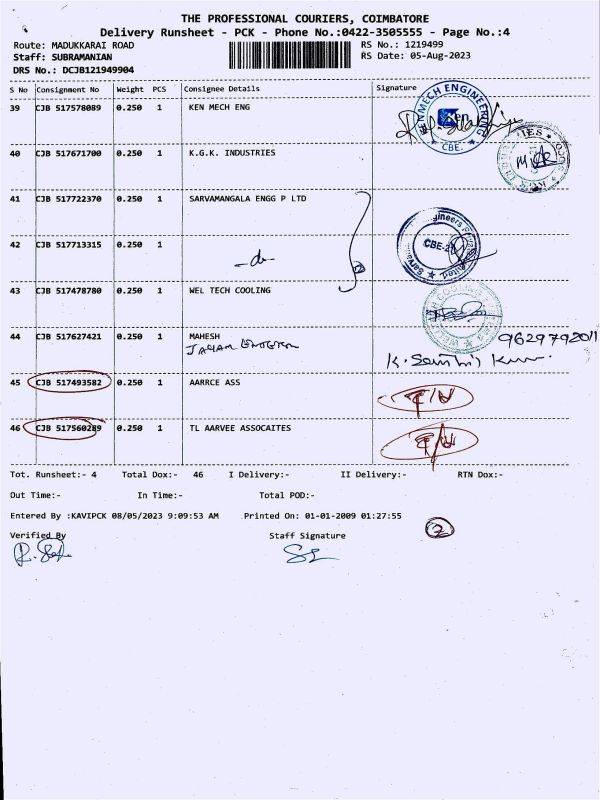 THE PROFESSIONAL COURIERS, COIMBATORE
Delivery Runsheet - PCK - Phone No.:0422-3505555 - Page No.:4
Route: MADUKKARAI ROAD RS No.: 1219499
Staff: SUBRAMANIAN RS Date: 05-Aug-2023
DRS No.: DCJB121949904
S No Consignment No Weight PCS Consignee Details Signature
39 CJB 517578089 0.250 1 KEN MECH ENG
KEN MECH ENGINEERING
Ken
CBE-
40 CJB 517671700 0.250 1 K.G.K. INDUSTRIES
41 CJB 517722370 0.250 1 SARVAMANGALA ENGG P LTD
CBE-21
42 CJB 517713315 0.250 1
-do-
43 CJB 517478780 0.250 1 WEL TECH COOLING
44 CJB 517627421 0.250 1 MAHESH
9629792011
45 CJB 517493582 0.250 1 AARRCE ASS
46 CJB 517560289 0.250 1 TL AARVEE ASSOCAITES
Tot. Runsheet:- 4 Total Dox:- 46 I Delivery:- II Delivery:- RTN Dox:-
Out Time:- In Time:- Total POD:-
Entered By :KAVIPCK 08/05/2023 9:09:53 AM Printed On: 01-01-2009 01:27:55
2
Verified By Staff Signature